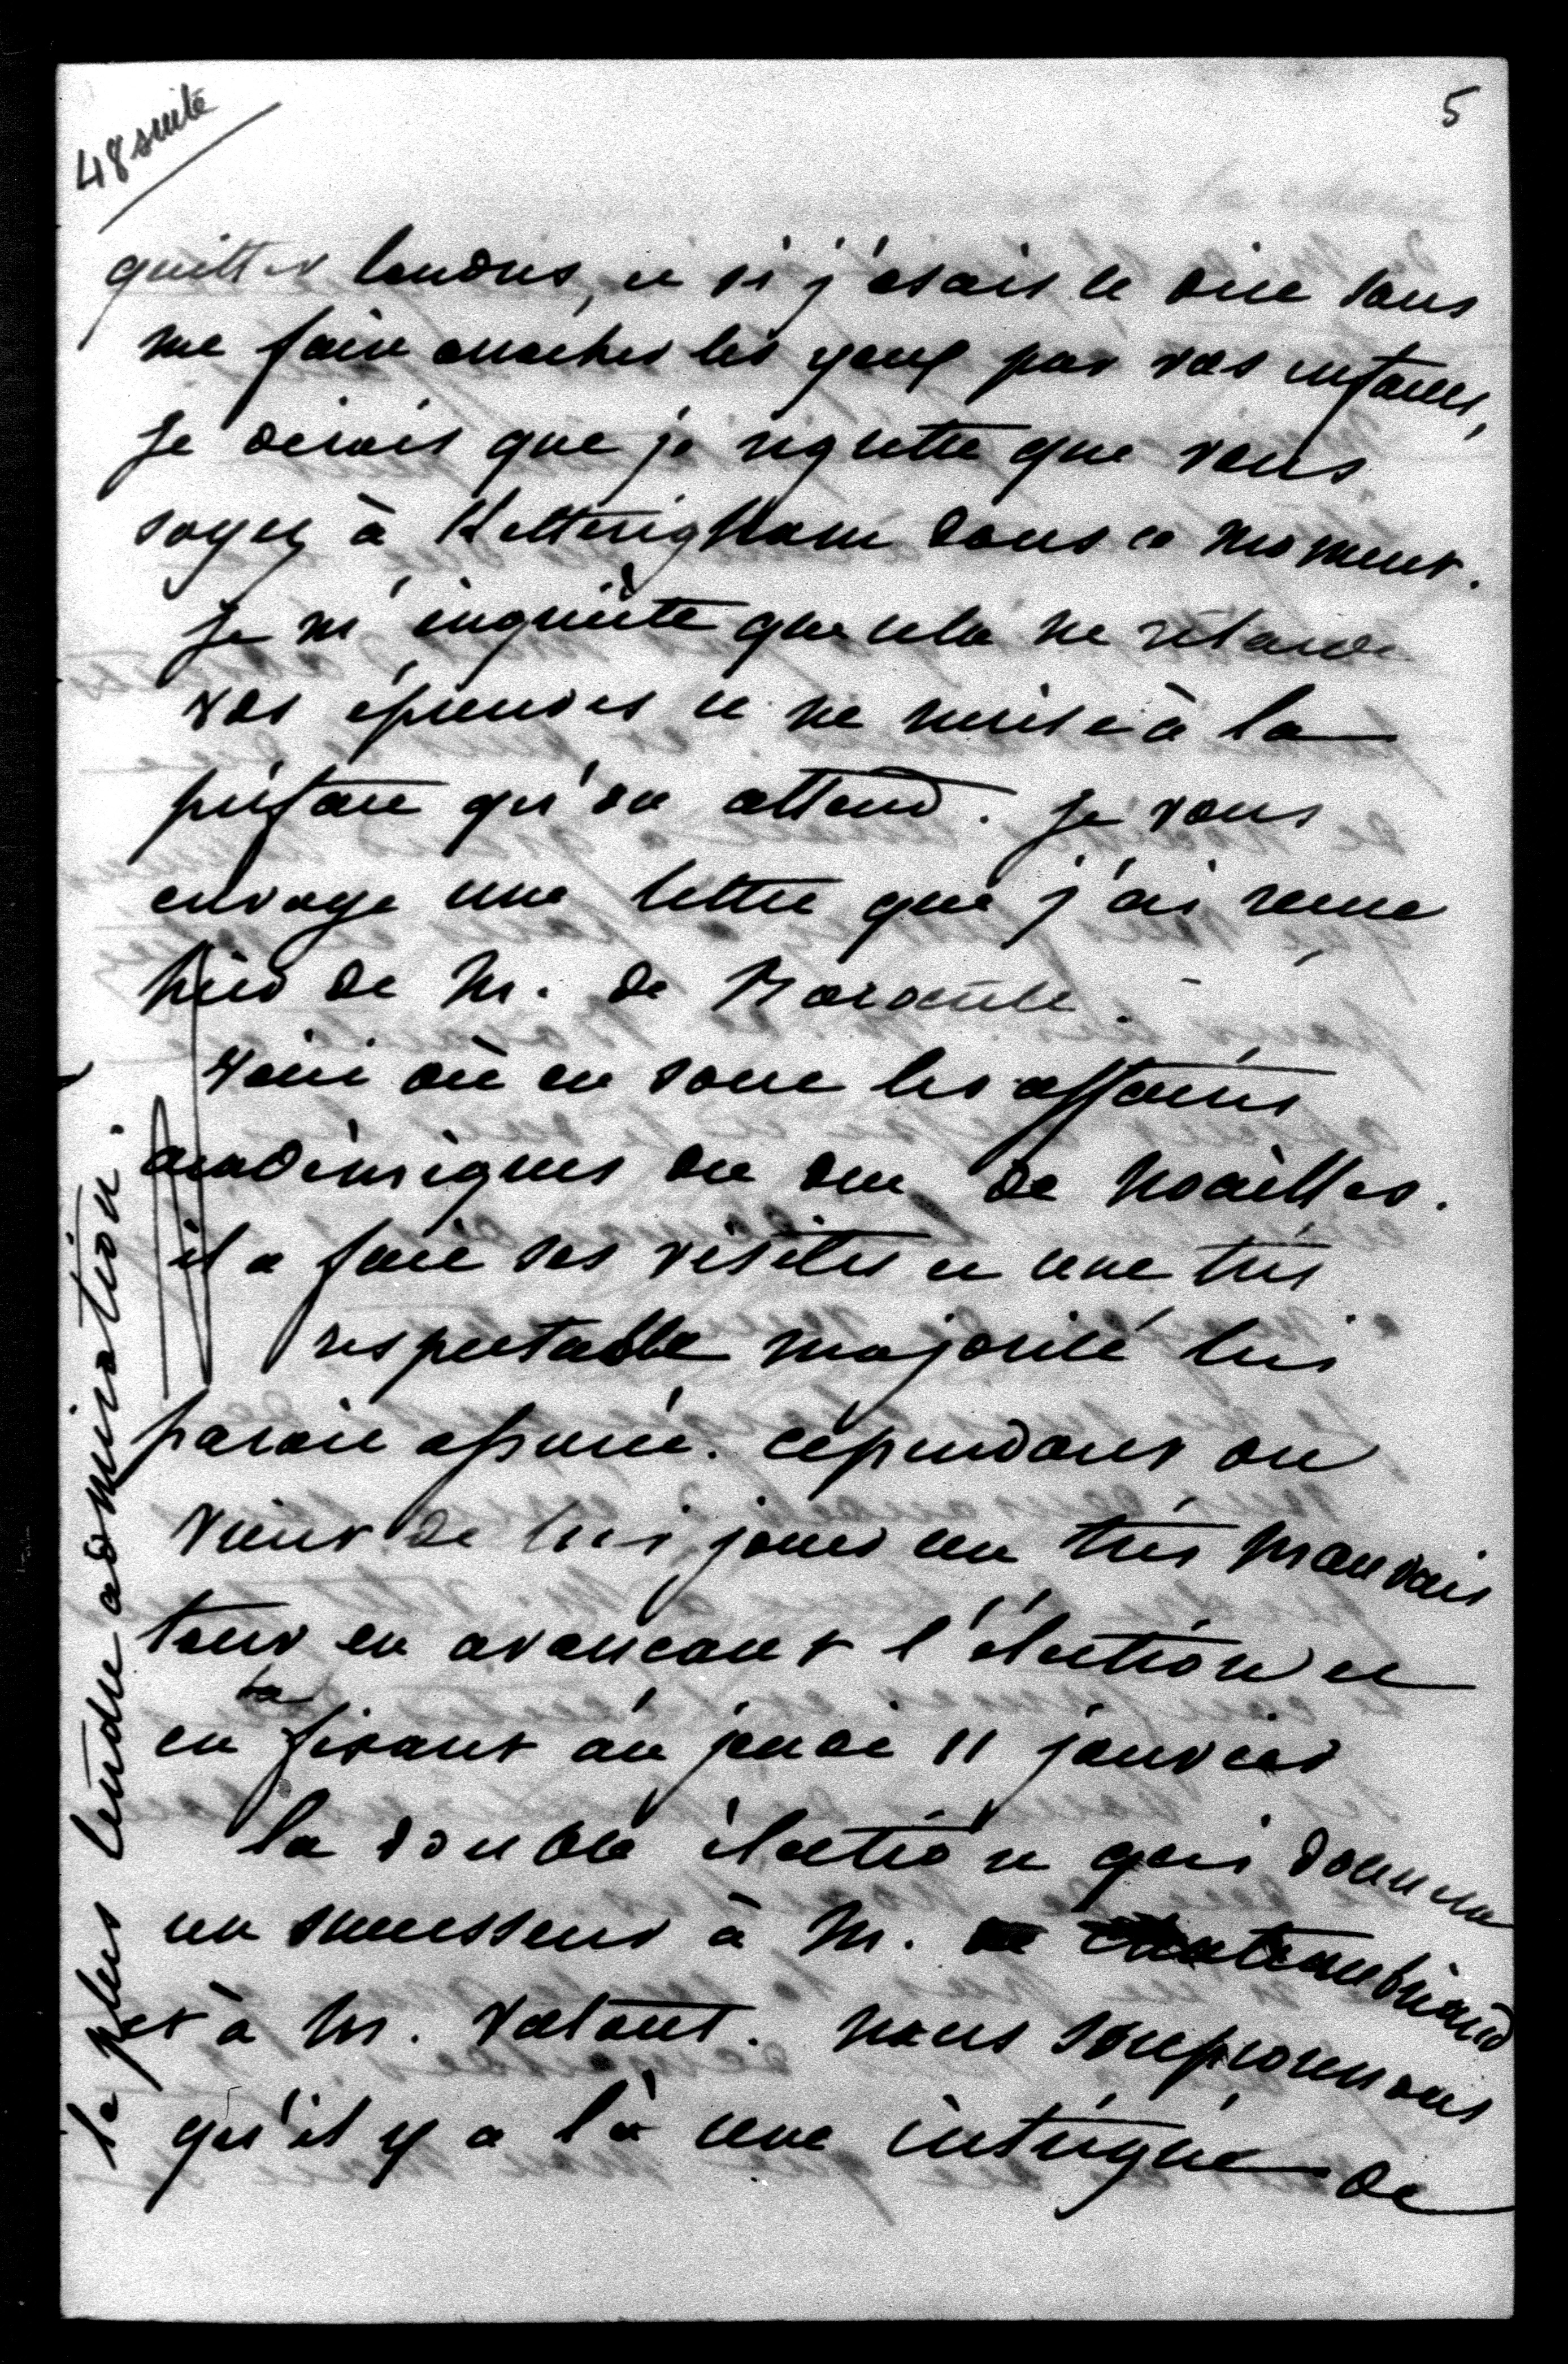 48 suite
5
quitter londres, et si j'osais le dire sans
me faire arracher les yeux par vos enfans,
Je dirais que je regrette que vous
soyez à Ketteringham dans ce moment.
Je m'inquiète que cela ne retarde
vos épreuves et ne nuise à la
préface qu'on attend. Je vous
envoye une lettre que j'ai reçue
hier de M. de Barante.
Voici où en sont les affaires
académiques du duc de Noailles.
il a fait ses visites et une très
respectable majorité lui
parait assurée. cependant on
vient de lui jouer un très mauvais
tour en avançant l'élection et
en la fixant au jeudi 11 janvier
la double élection qui donnera
un successeur à M. de Chateaubriand
et à M. Vatout. nous soupçonnons
qu'il y a là une intrigue de
la plus tendre admiration.